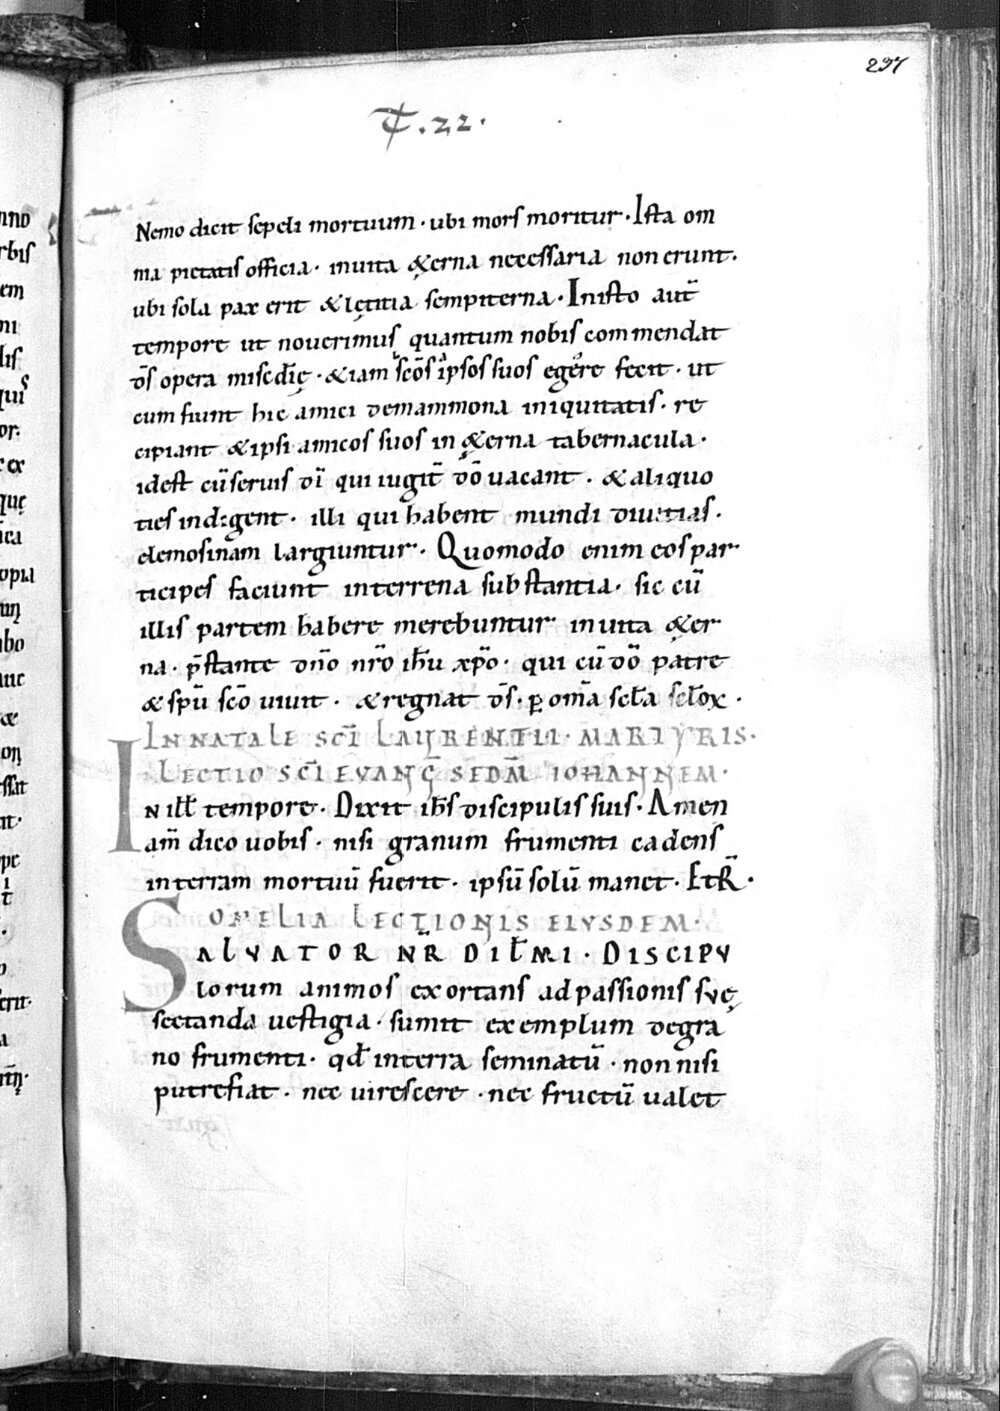 237
T. 22.
Nemo dicit sepeli mortuum · ubi mors moritur · Ista om
nia pietatis officia · inuita &erna necessaria non erunt.
ubi sola pax erit & lętitia sempiterna · Inisto aut̄
tempore ut nouerimus quantum nobis commendat
d̄s opera misc̄dię · & iam sc̄os ipsos suos egere fecit · ut
cum fiunt hic amici demammona iniquitatis · re
cipiant & ipsi amicos suos in ę&erna tabernacula ·
idest cū seruis dī qui iugit̄ dō uacant · & aliquo
ties indigent · illi qui habent mundi diuitias ·
elemosinam largiuntur · Quomodo enim eos par
ticipes faciunt interrena substantia · sic cū
illis partem habere merebuntur inuita &er
na · p̄stante dn̄o nr̄o ih̄u xp̄o · qui cū dō patre
& sp̄u sc̄o uiuit · & regnat d̄s · ꝑ om̄a sc̄la sc̄loꝝ ·
IN NATALE SCĪ LAURENTII · MARTYRIS ·
LECTIO SCĪ EVANḠ SECD̄M IOHANNEM ·
IN ill̄ tempore · Dixit ih̄s discipulis suis · Amen
am̄ dico uobis · nisi granum frumenti cadens
interram mortuū fuerit · ipsū solū manet · Et R̄ ·
OMELIA LECTIONIS EIVSDEM ·
SALVATOR NR̄ DIL̄MI · DISCIPV
lorum animos exortans ad passionis suę
sectanda uestigia · sumit exemplum degra
no frumenti · qd̄ interra seminatū · non nisi
putrefiat · nec uirescere · nec fructū ualet